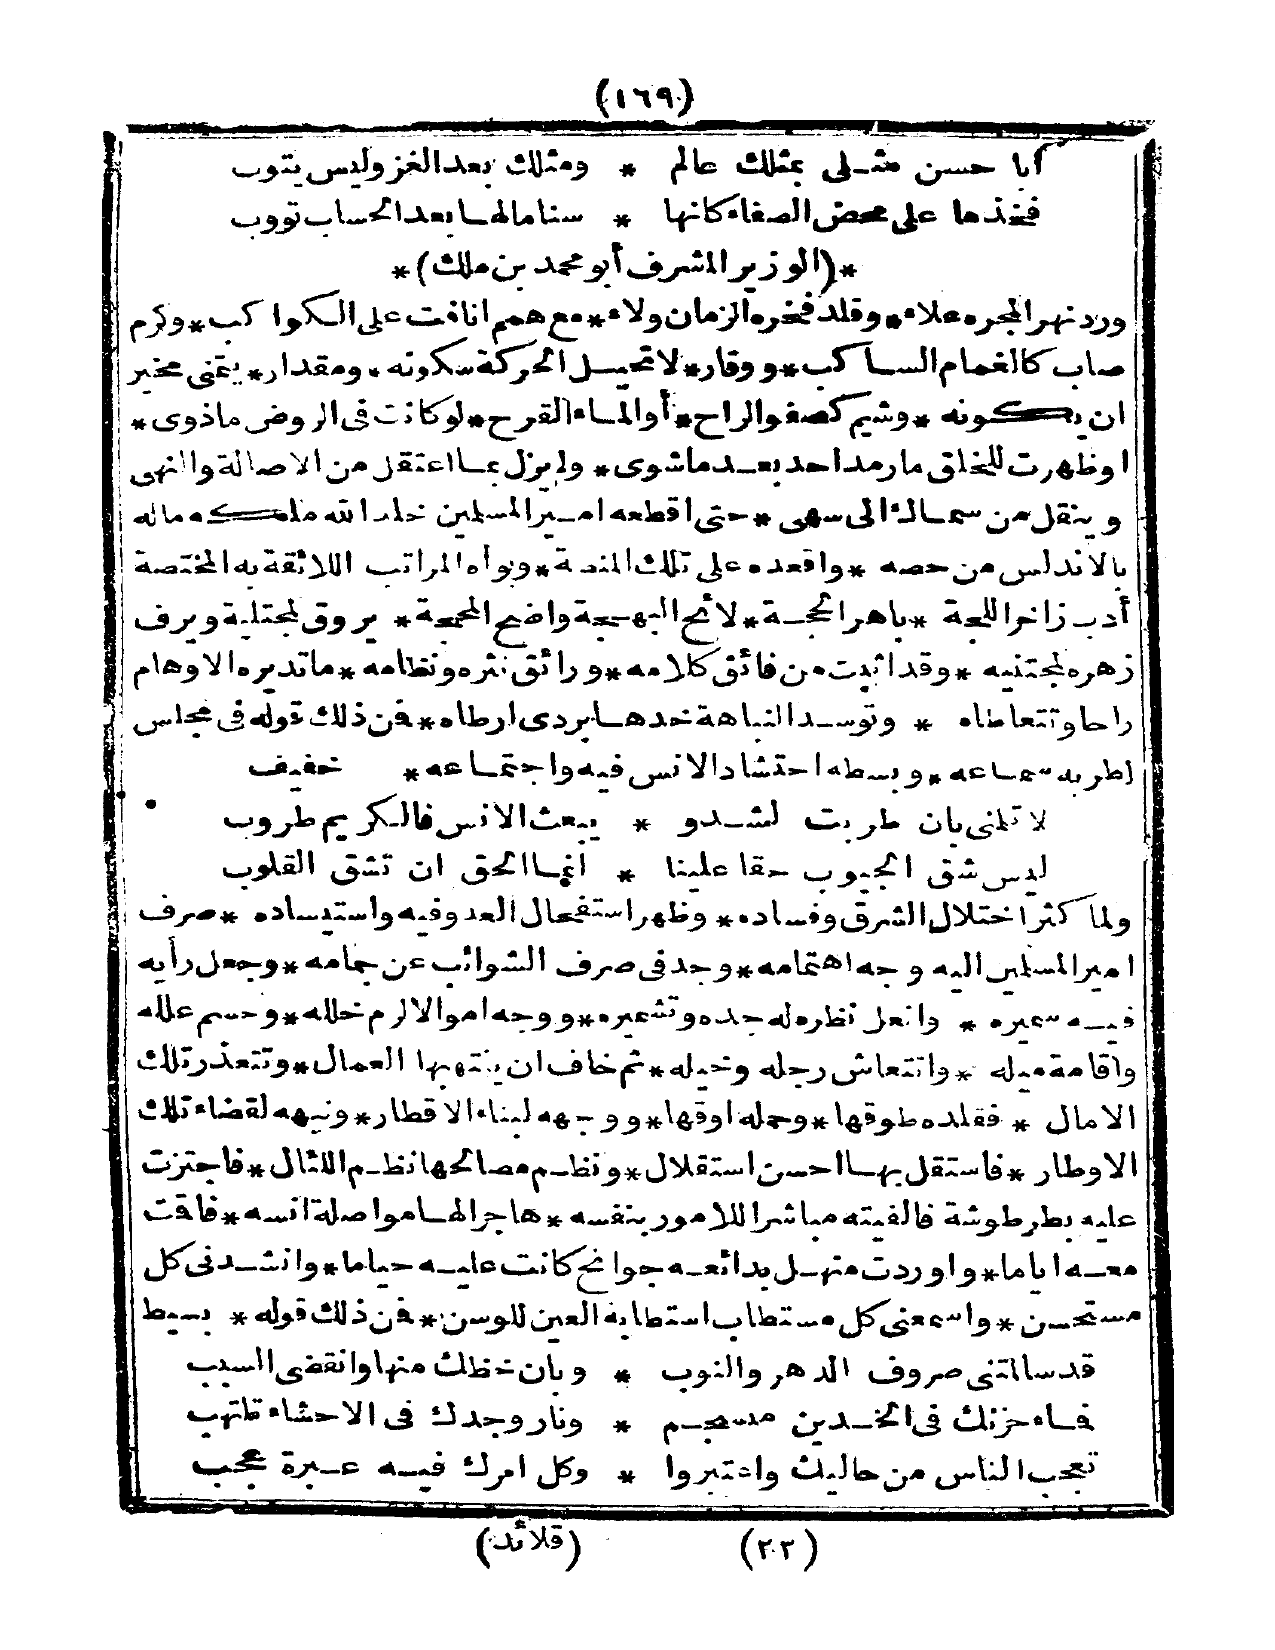 (١٦٩)
أبا حسن مثلى بمثلك عالم * ومثلك بعد الغز وليس يتوب
فخذها على محض الصفاء كانها * سنا مالها بعد الحساب تووب
*(الوزير المشرف أبو محمد بن ملك)*
ورد نهر المجره علاء * وقلد فخره الزمان ولاء * مع همم انافت على الكواكب * وكرم
صاب كالغمام الساكب * ووقار * لا تحيل الحركة سكونه * ومقدار * يتمنى مخبر
ان يكونه * وشيم كصفو الراح * أو الماء القرح * لو كانت فى الروض ماذوى *
اوظهرت للخلق مارمد احد بعد ماشوى * ولم يزل عما اعتقل من الاصالة والنهى
وينقل من سماك الى سهى * حتى اقطعه امير المسلمين خلد الله ملكه ماله
بالاندلس من حصه * واقعده على تلك المنصة * وبوأه المراتب اللائقة به المختصة
أدب زاخر اللجة * باهر الحجة * لائح البهجة واضح المحجة * يروق لمجتلية ويرف
زهره لمجتنيه * وقد اثبت من فائق كلامه * ورائق نثره ونظامه * ما تديره الاوهام
راحا وتتعاطاه * وتوسد النباهة خدها بردى ارطاه * فمن ذلك قوله فى مجلس
اطربه سماعه * وبسطه احتشاد الانس فيه واجتماعه * خفيف
لا تلمنى بان طربت لشدو * يبعث الانس فالكريم طروب
ليس شق الجيوب حقا علينا * انما الحق ان تشق القلوب
ولما كثر اختلال الشرق وفساده * وظهر استفحال العدو فيه واستيساده * صرف
امير المسلمين اليه وجه اهتمامه * وجد فى صرف الشوائب عن جمامه * وجعل رأيه
فيه سميره * وانعل نظره له جده وتشميره * ووجه اموالا لرم خلله * وحسم علله
واقامة ميله * وانتعاش رجله وخيله * ثم خاف ان ينتهبها العمال * وتتعذر تلك
الامال * فقلده طوقها * وحمله اوقها * ووجهه لبناء الاقطار * ونبهه لقضاء تلك
الاوطار * فاستقل بها احسن استقلال * ونظم مصالحها نظم اللئال * فاجتزت
عليه بطرطوشة فالفيته مباشرا للامور بنفسه * هاجرا لها مواصلة انسه * فاقت
معه اياما * واوردت منهل بدائعه جوانح كانت عليه حياما * وانشد فى كل
مستحسن * واسمعنى كل مستطاب استطابة العين للوسن * فمن ذلك قوله * بسيط
قد سالتنى صروف الدهر والنوب * وبان حظك منها وانقضى السبب
فماء حزنك فى الخدين منسجم * ونار وجدك فى الاحشاء تلتهب
تعجب الناس من حاليك واعتبروا * وكل امرك فيه عبرة عجب
(٢٢) (قلائد)